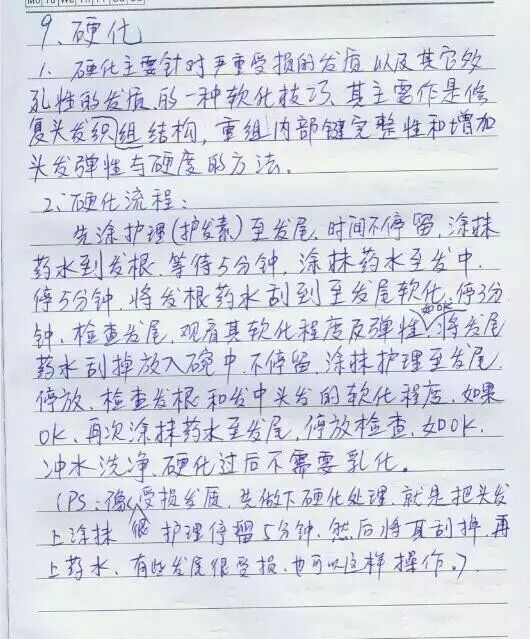 Mo Tu We Th Fr Sa Su
9、硬化
1、硬化主要针对严重受损的发质以及其它多
孔性的发质的一种软化技巧,其主要作是修
复头发织组结构,重组内部键完整性和增加
头发弹性与硬度的方法。
2、硬化流程:
先涂护理(护发素)至发尾,时间不停留,涂抹
药水到发根,等待5分钟,涂抹药水至发中,
停5分钟,将发根药水刮到至发尾软化,停3分
钟,检查发尾,观看其软化程度及弹性,如OK将发尾
药水刮掉放入碗中,不停留,涂抹护理至发尾,
停放,检查发根和发中头发的软化程度,如果
OK,再次涂抹药水至发尾,停放检查,如OK,
冲水洗净,硬化过后不需要乳化。
(PS:像很受损发质,先做下硬化处理,就是把头发
上涂抹护理停留5分钟,然后将其刮掉,再
上药水,有些发尾很受损,也可以这样操作。)